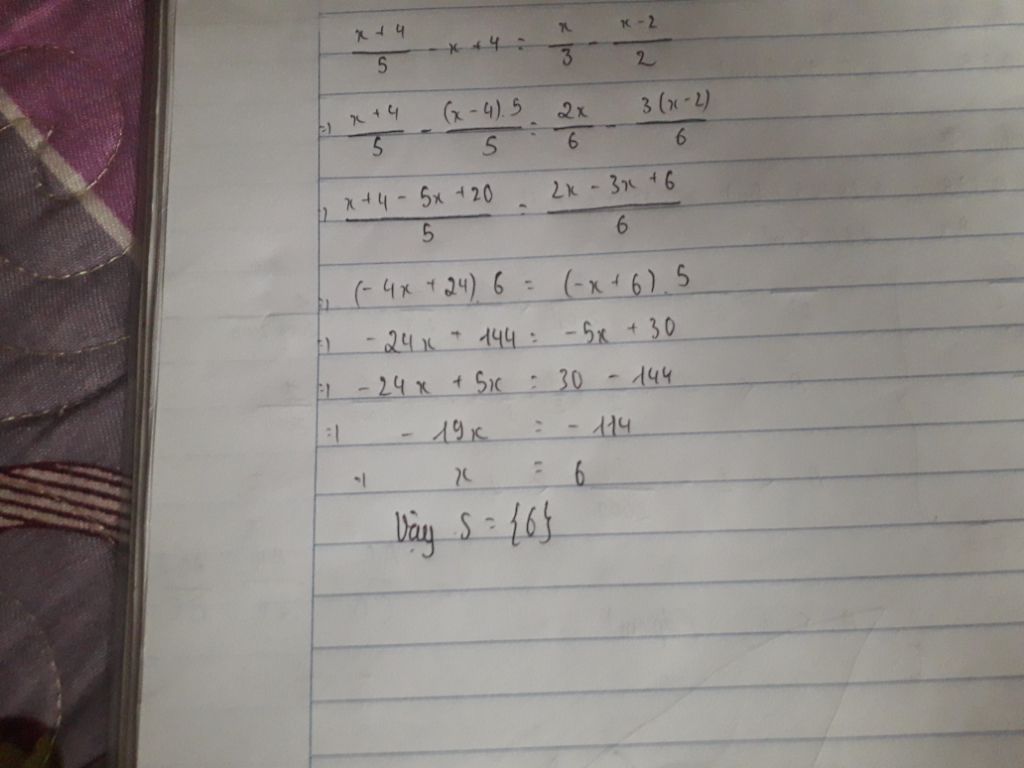 x+4/5 - x+4 = x/3 - x-2/2
=> x+4/5 - (x-4).5/5 = 2x/6 - 3(x-2)/6
=> x+4-5x+20/5 = 2x-3x+6/6
=> (-4x+24).6 = (-x+6).5
=> -24x + 144 = -5x + 30
=> -24x + 5x = 30 - 144
=> -19x = -114
=> x = 6
Vậy S = {6}